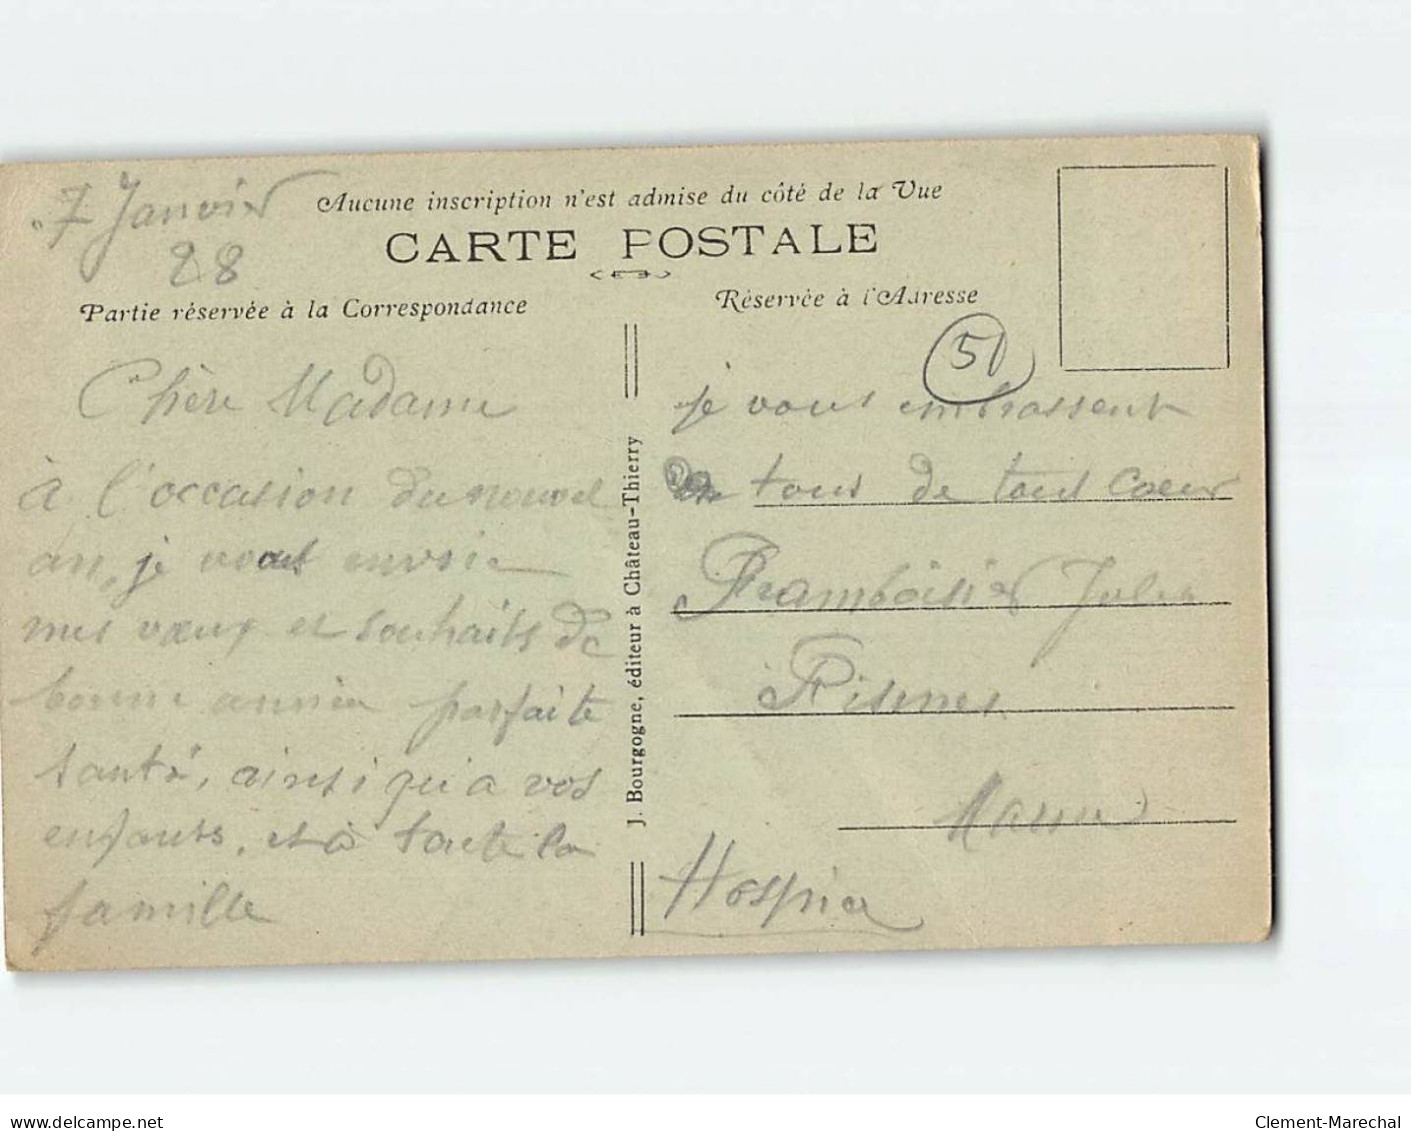 7 Janvier
28
Aucune inscription n'est admise du côté de la Vue
CARTE POSTALE
Partie réservée à la Correspondance
Réservée à l'Adresse
51
Chère Madame
à l'occasion du nouvel
an, je vous envoie
mes vœux et souhaits de
bonne année parfaite
santé, ainsi qui a vos
enfants, et à toute la
famille
J. Bourgogne, éditeur à Château-Thierry
je vous embrassent
tous de tout Cœur
Framboisier Julien
Fismes
Marne
Hospice
www.delcampe.net
Clement-Marechal